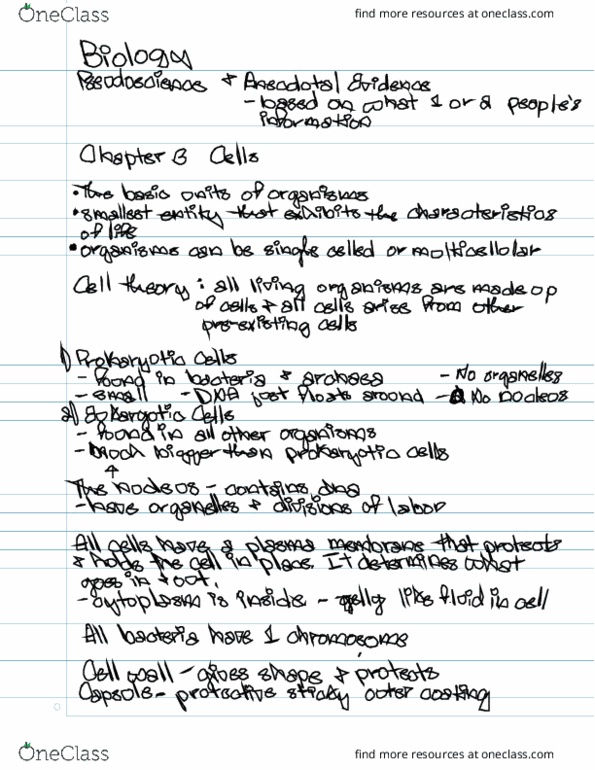 OneClass
find more resources at oneclass.com
Biology
Pseudoscience + Anecdotal Evidence
- based on what 1 or 2 people's
information
Chapter 3 Cells
• The basic units of organisms
• smallest entity that exhibits the characteristics
of life
• organisms can be single celled or multicellular
Cell theory : all living organisms are made up
of cells + all cells arise from other
pre-existing cells
1) Prokaryotic Cells
- found in bacteria & archaea - No organelles
- small - DNA just floats around - No nucleus
2) Eukaryotic Cells
- found in all other organisms
- Much bigger than prokaryotic cells
The nucleus - contains dna
- have organelles + divisions of labor
All cells have a plasma membrane that protects
& holds the cell in place. It determines what
goes in + out.
- cytoplasm is inside - gelly like fluid in cell
All bacteria have 1 chromosome
Cell wall - gives shape + protects
Capsule - protective sticky outer coating
OneClass
find more resources at oneclass.com